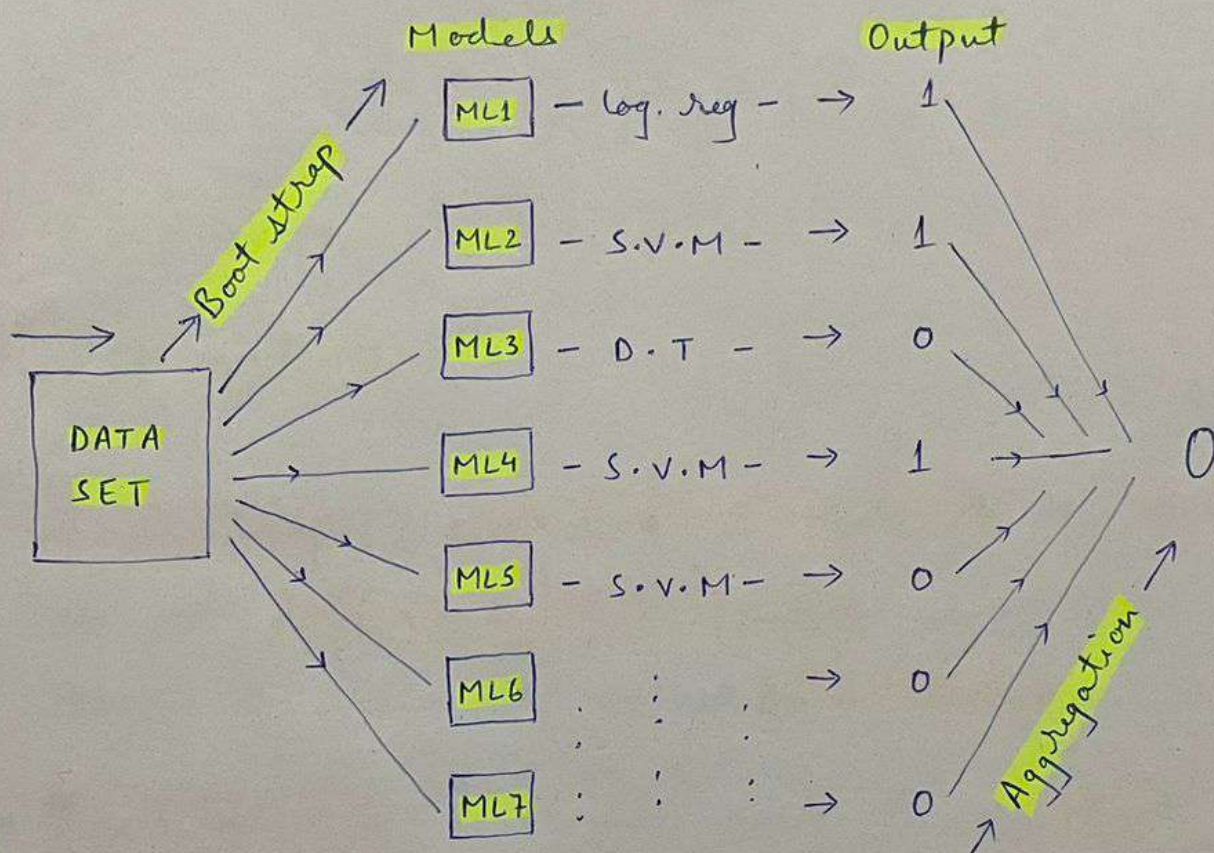 Models Output
Boot strap
ML1 - log. reg - → 1
ML2 - S.V.M - → 1
ML3 - D.T - → 0
DATA
SET
ML4 - S.V.M - → 1
0
ML5 - S.V.M - → 0
ML6 → 0
ML7 → 0
Aggregation